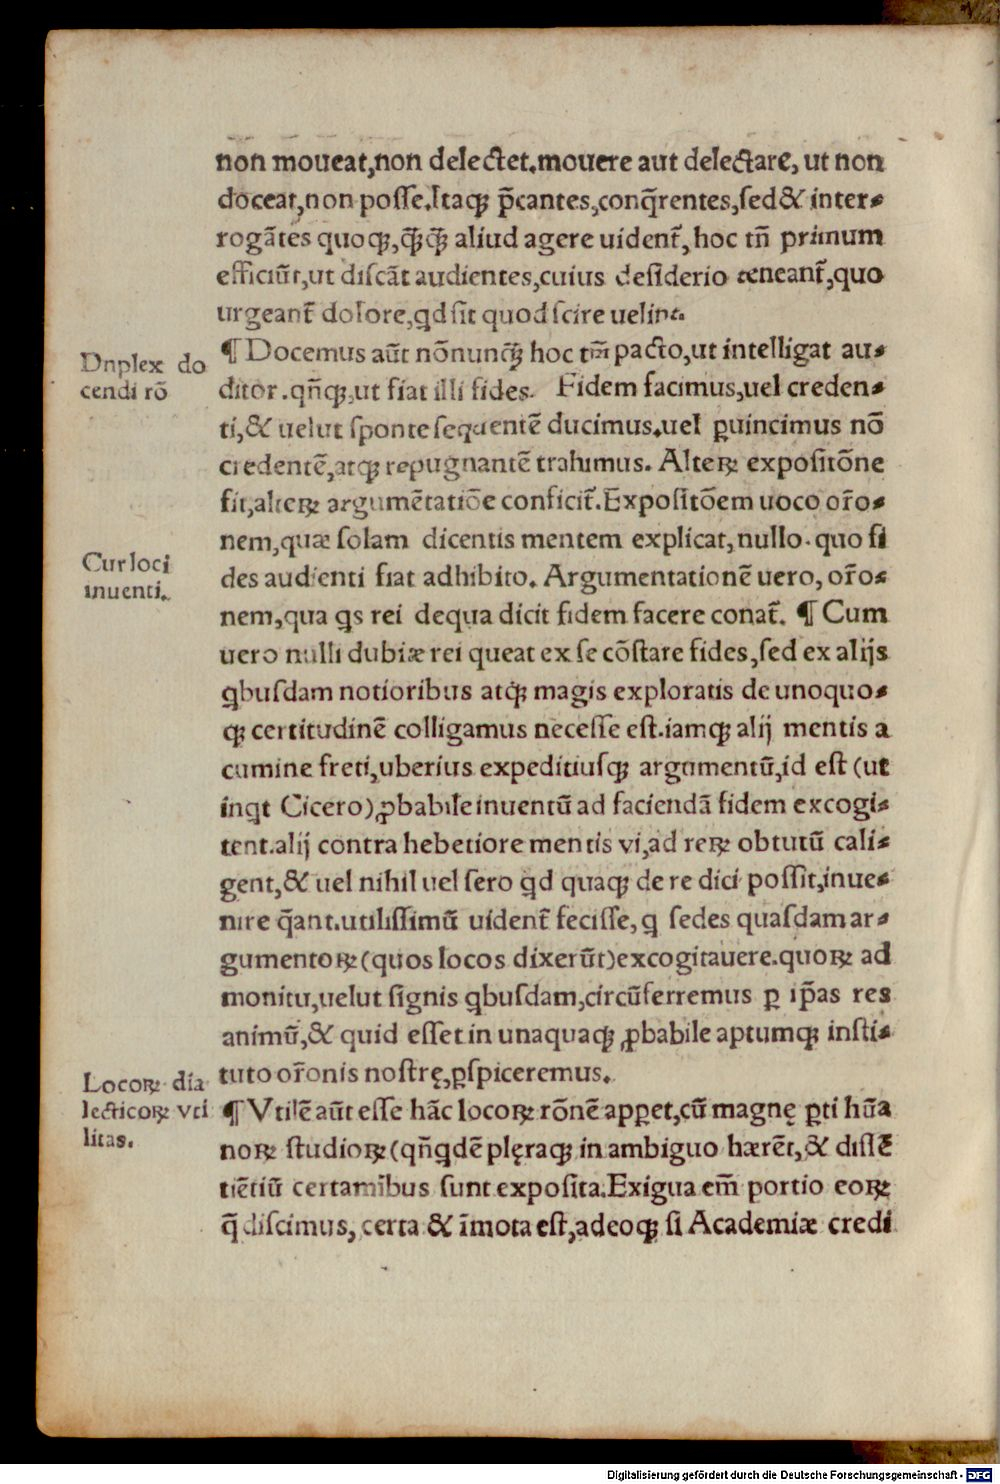 non moueat,non delectet.mouere aut delectare, ut non
doceat,non posse.Itaqꝫ p̄cantes,conq̄rentes,sed & inter-
rogātes quoqꝫ,q̄qꝫ aliud agere uident̄, hoc tn̄ primum
efficiūt,ut discāt audientes,cuius desiderio teneant̄,quo
urgeant̄ dolore,qd sit quod scire uelint.
Dnplex do
cendi rō
¶ Docemus aūt nōnunqꝫ hoc tm̄ pacto,ut intelligat au-
ditor.qn̄qꝫ,ut fiat illi fides. Fidem facimus,uel creden-
ti,& uelut sponte sequentē ducimus.uel ꝑuincimus nō
credentē,atqꝫ repugnantē trahimus. Alteꝝ expositōne
fit,alteꝝ argumētatiōe conficit̄.Expositōem uoco or̄o-
nem,quæ solam dicentis mentem explicat,nullo.quo fi
des audienti fiat adhibito. Argumentationē uero, or̄o-
nem,qua qs rei dequa dicit fidem facere conat̄. ¶ Cum
Cur loci
inuenti.
uero nulli dubiæ rei queat ex se cōstare fides,sed ex alijs
qbusdam notioribus atqꝫ magis exploratis de unoquo-
qꝫ certitudinē colligamus necesse est.iamqꝫ alij mentis a
cumine freti,uberius expeditiusqꝫ argumentū,id est (ut
inqt Cicero)ꝓbabile inuentū ad faciendā fidem excogi-
tent.alij contra hebetiore mentis vi,ad reꝝ obtutū cali-
gent,& uel nihil uel sero qd quaqꝫ de re dici possit,inue-
nire q̄ant.utilissimū uident̄ fecisse, q sedes quasdam ar-
gumentoꝝ(quos locos dixerūt)excogitauere.quoꝝ ad
monitu,uelut signis qbusdam,circūferremus ꝑ ip̄as res
animū,& quid esset in unaquaqꝫ ꝓbabile aptumqꝫ insti-
tuto or̄onis nostrę,ꝑspiceremus.
Locoꝝ dia
lecticoꝝ vti
litas.
¶ Vtilē aūt esse hāc locoꝝ rōnē apꝑet,cū magnę ꝑti hūa
noꝝ studioꝝ(qn̄qdē plęraqꝫ in ambiguo hærēt,& dissē
tiētiū certamībus sunt exposita.Exigua em̄ portio eoꝝ
q̄ discimus, certa & īmota est,adeoqꝫ si Academiæ credi
Digitalisierung gefördert durch die Deutsche Forschungsgemeinschaft - DFG